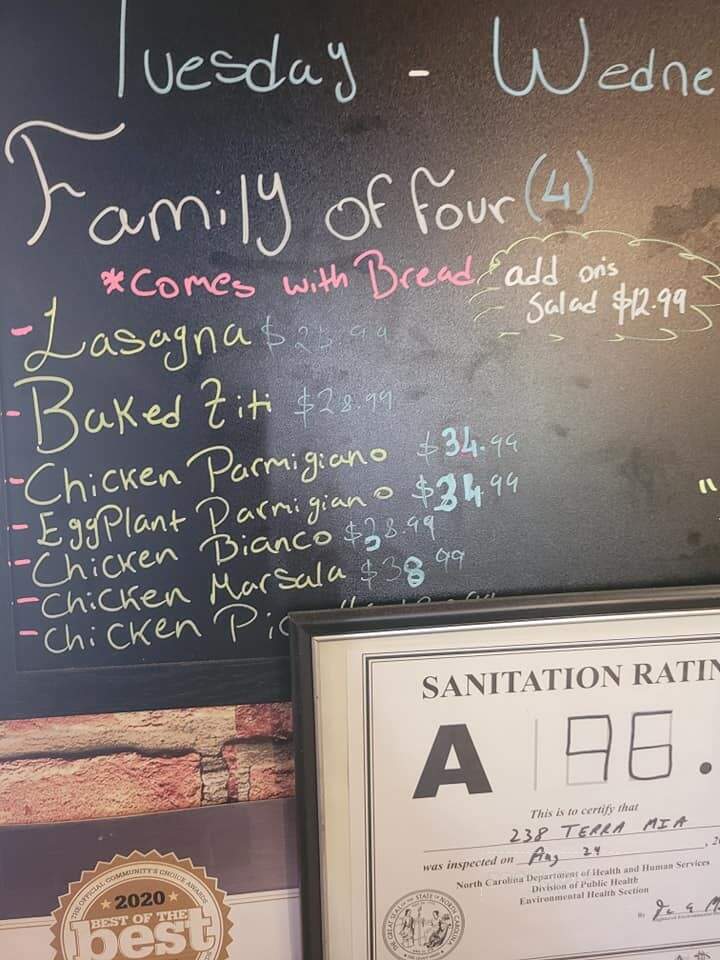 Tuesday - Wedne
Family of four (4)
*Comes with Bread
add ons
Salad $12.99
- Lasagna
- Baked Ziti $28.99
- Chicken Parmigiano $34.99
- EggPlant Parmigiano $34.99
- Chicken Bianco $38.99
- Chicken Marsala $38.99
- Chicken Pic
SANITATION RATIN
A 96.
This is to certify that
238 TERRA MIA
was inspected on Aug 24
North Carolina Department of Health and Human Services
Division of Public Health
Environmental Health Section
By
THE OFFICIAL COMMUNITY'S CHOICE AWARDS
2020
BEST OF THE
best